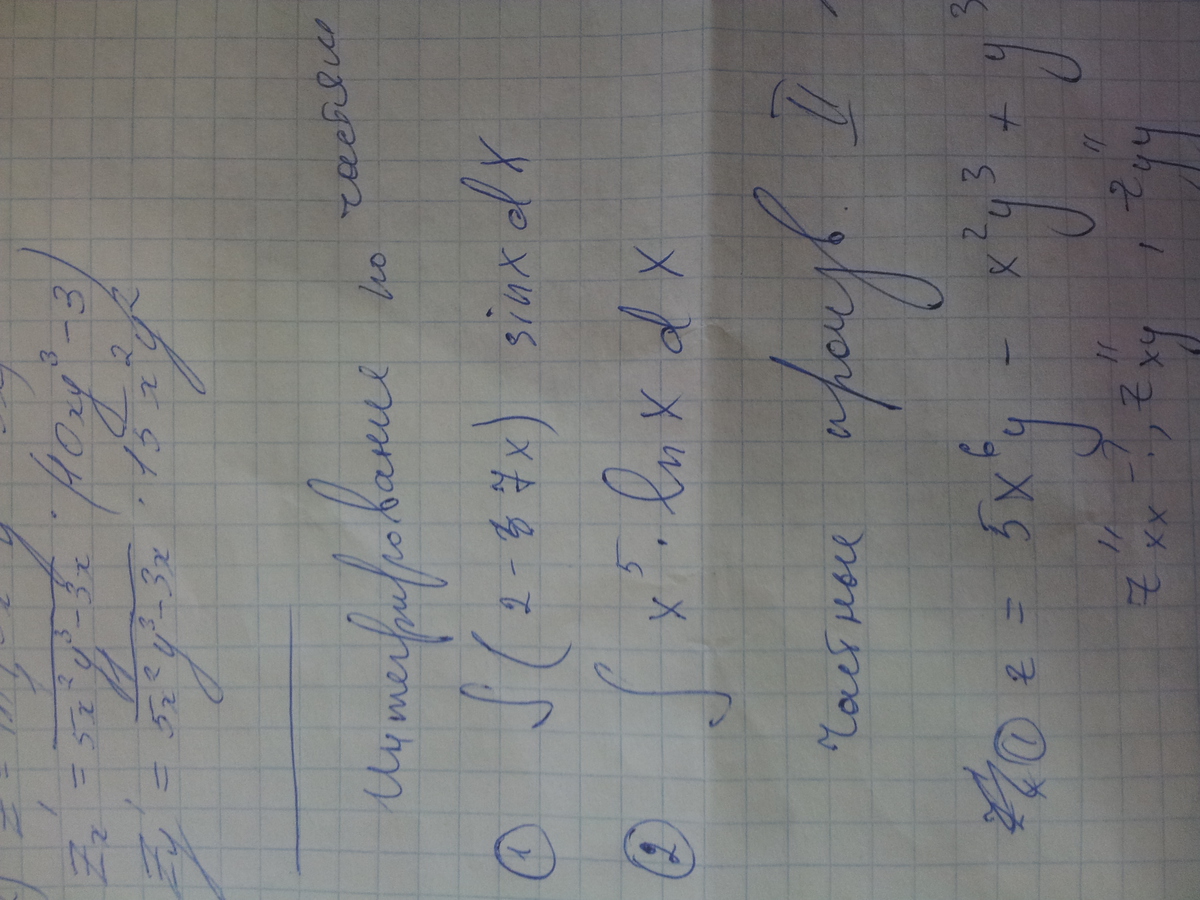 Z'x = 1/(5x²y³-3x) · (10xy³-3)
Z'y = 1/(5x²y³-3x) · 15x²y²
Интегрирование по частям
① ∫ (2-7x) sinx dx
② ∫ x⁵ · ln x dx
Частные произв. II
① z = 5x⁶y - x²y³ + y³
z''xx - ?, z''xy, z''yy